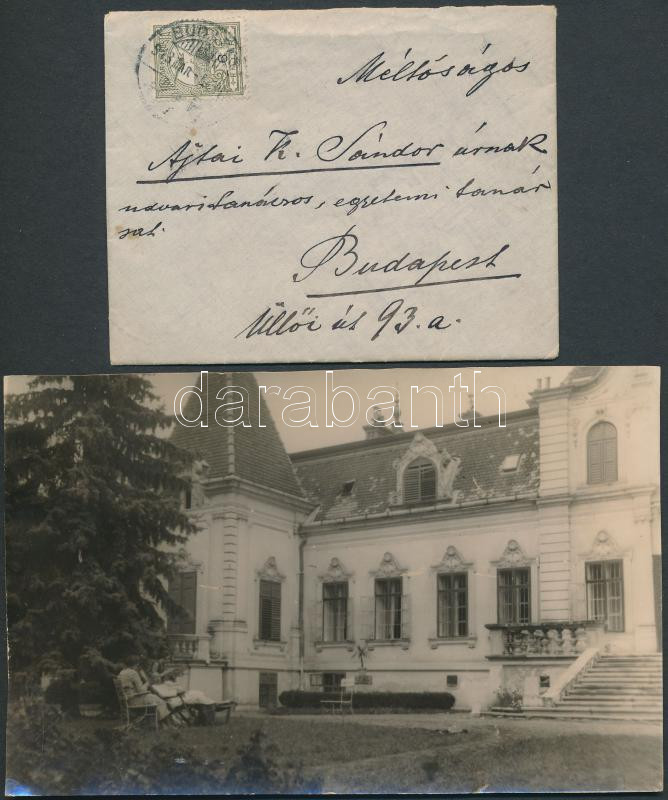 BUDAPEST
Méltóságos
Ajtai K. Sándor úrnak
udvari tanácsos, egyetemi tanár
sat.
Budapest
Üllői út 93. a.
darabanth